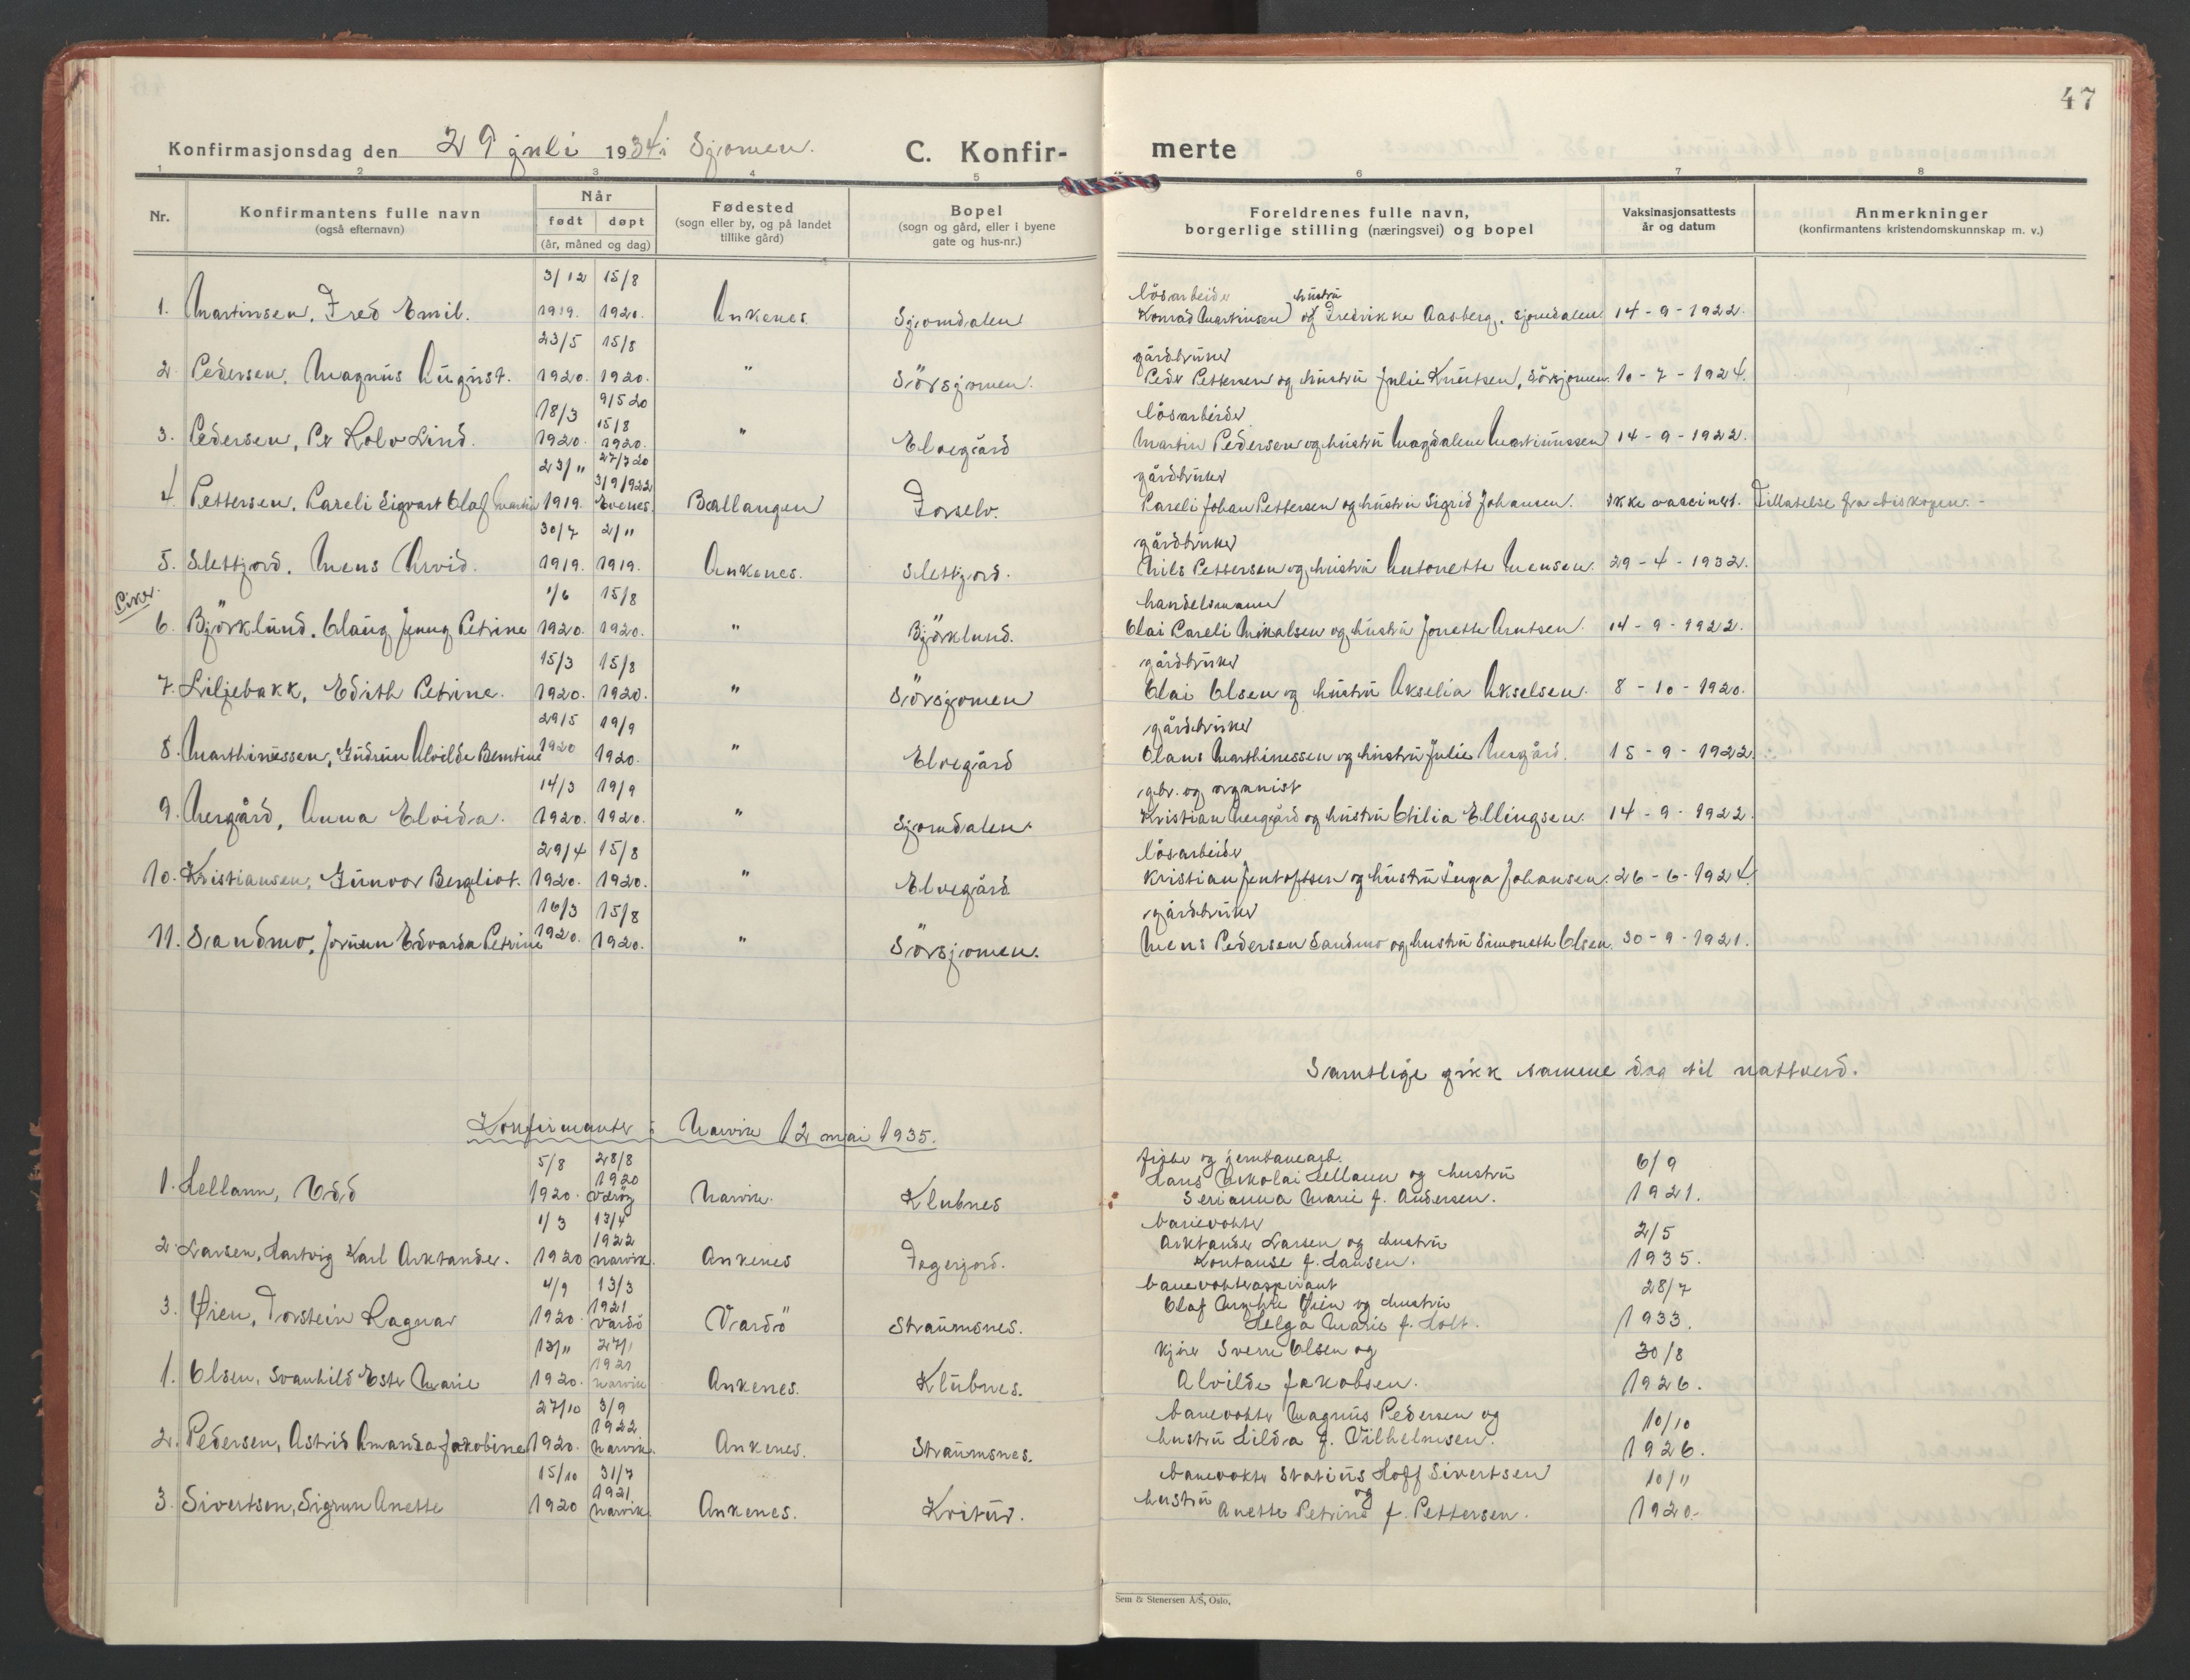 47
Konfirmasjonsdag den 29 juli 1934 i Sjomen. C. Konfir- merte
1 2 3 4 5 6 7 8
Nr. Konfirmantens fulle navn (også efternavn) Når født døpt (år, måned og dag) Fødested (sogn eller by, og på landet tillike gård) Bopel (sogn og gård, eller i byene gate og hus-nr.) Foreldrenes fulle navn, borgerlige stilling (næringsvei) og bopel Vaksinasjonsattests år og datum Anmerkninger (konfirmantens kristendomskunnskap m. v.)
3/12 15/8 lösarbeider hustru
1. Martinsen, Fred Emil. 1919. 1920. Ankenes Sjomdalen Konrad Martinsen og Fredrikke Aasberg, Sjomdalen 14-9-1922.
23/5 15/8 gårdbruker
2. Pedersen, Magnus August. 1920. 1920. " Sörsjomen. Peder Pettersen og hustru Julie Knutsen, Sörsjomen. 10-7-1924.
18/3 9/5 20 15/8 lösarbeider
3. Pedersen, Per Rolv Lind. 1920. 1920. " Elvegård Martin Pedersen og hustru Magdalene Martinussen 14-9-1922.
23/11 27/7 20 3/9 1922 gårdbruker
4. Pettersen, Pareli Sigvart Olaf Martin 1919. Evenes. Ballangen Forselv. Pareli Johan Pettersen og hustru Sigrid Johansen. ikke vaccinert. Tillatelse fra biskopen. -
30/7 2/11 gårdbruker
5. Slettjord, Mens Arvid. 1919. 1919. Ankenes. Slettjord. Nils Pettersen og hustru Antonette Mensen. 29-4-1932.
Piker.
1/6 15/8 handelsmann
6. Björklund, Olaug Jenny Petrine 1920. 1920. " Björklund. Olai Pareli Mikalsen og hustru Jonette Arntsen. 14-9-1922.
15/3 15/8 gårdbruker
7. Liljebakk, Edith Petrine. 1920. 1920. " Sörsjomen Olai Olsen og hustru Akselia Akselsen. 8-10-1920.
29/5 19/9 gårdbruker
8. Marthinussen, Gudrun Alvilde Berntine 1920 1920. " Elvegård Olaus Marthinussen og hustru Julie Nergård. 15-9-1922.
14/3 19/9 gbr. og organist
9. Nergård, Anna Elvida. 1920. 1920. " Sjomdalen. Kristian Nergård og hustru Otilia Ellingsen. 14-9-1922.
29/4 15/8 lösarbeider
10. Kristiansen, Gunvor Bergliot. 1920. 1920. " Elvegård Kristian Jentoftsen og hustru Inga Johansen. 26-6-1924.
16/3 15/8 gårdbruker
11. Sandmo, Jorunn Edvarda Petrine 1920. 1920. " Sörsjomen. Mens Pedersen Sandmo og hustru Simonette Olsen. 30-9-1921.
Samtlige gikk samme dag til nattverd.
Konfirmanter i Narvik 12 mai 1935.
5/8 28/8 1920 fisker og jernbanearb.
1. Hellann, Odd 1920. Værøy Narvik. Klubnes Hans Nikolai Hellann og hustru Serianna Marie f. Andersen. 6/9 1921.
1/3 13/4 1922 banevokter
2. Larsen, Hartvig Karl Arktander. 1920 Narvik. Ankenes Fagerjord. Arktander Larsen og hustru Kontanse f. Hansen. 2/5 1935.
4/9 13/3 1921 banevokteraspirant
3. Øien, Torstein Ragnar 1920. Vardö Vardö Straumsnes. Olaf Myhre Øien og hustru Helga Marie f. Holt. 28/7 1933.
13/11 27/1 1921
1. Olsen, Svanhild Ester Marie 1920. Narvik Ankenes. Klubnes. Kjörer Sverre Olsen og Alvilde Jakobsen. 30/8 1926.
27/10 3/9 1922
2. Pedersen, Astrid Amanda Jakobine 1920. Narvik. Ankenes. Straumsnes. banevokter Magnus Pedersen og hustru Hilda f. Vilhelmsen. 10/10 1926.
15/10 31/7 1921
3. Sivertsen, Sigrun Anette 1920 Narvik Ankenes. Kvitur. banevokter Statius Hoff Sivertsen og hustru Anette Petrine f. Pettersen. 10/11 1920.
Sem & Stenersen A/S, Oslo.